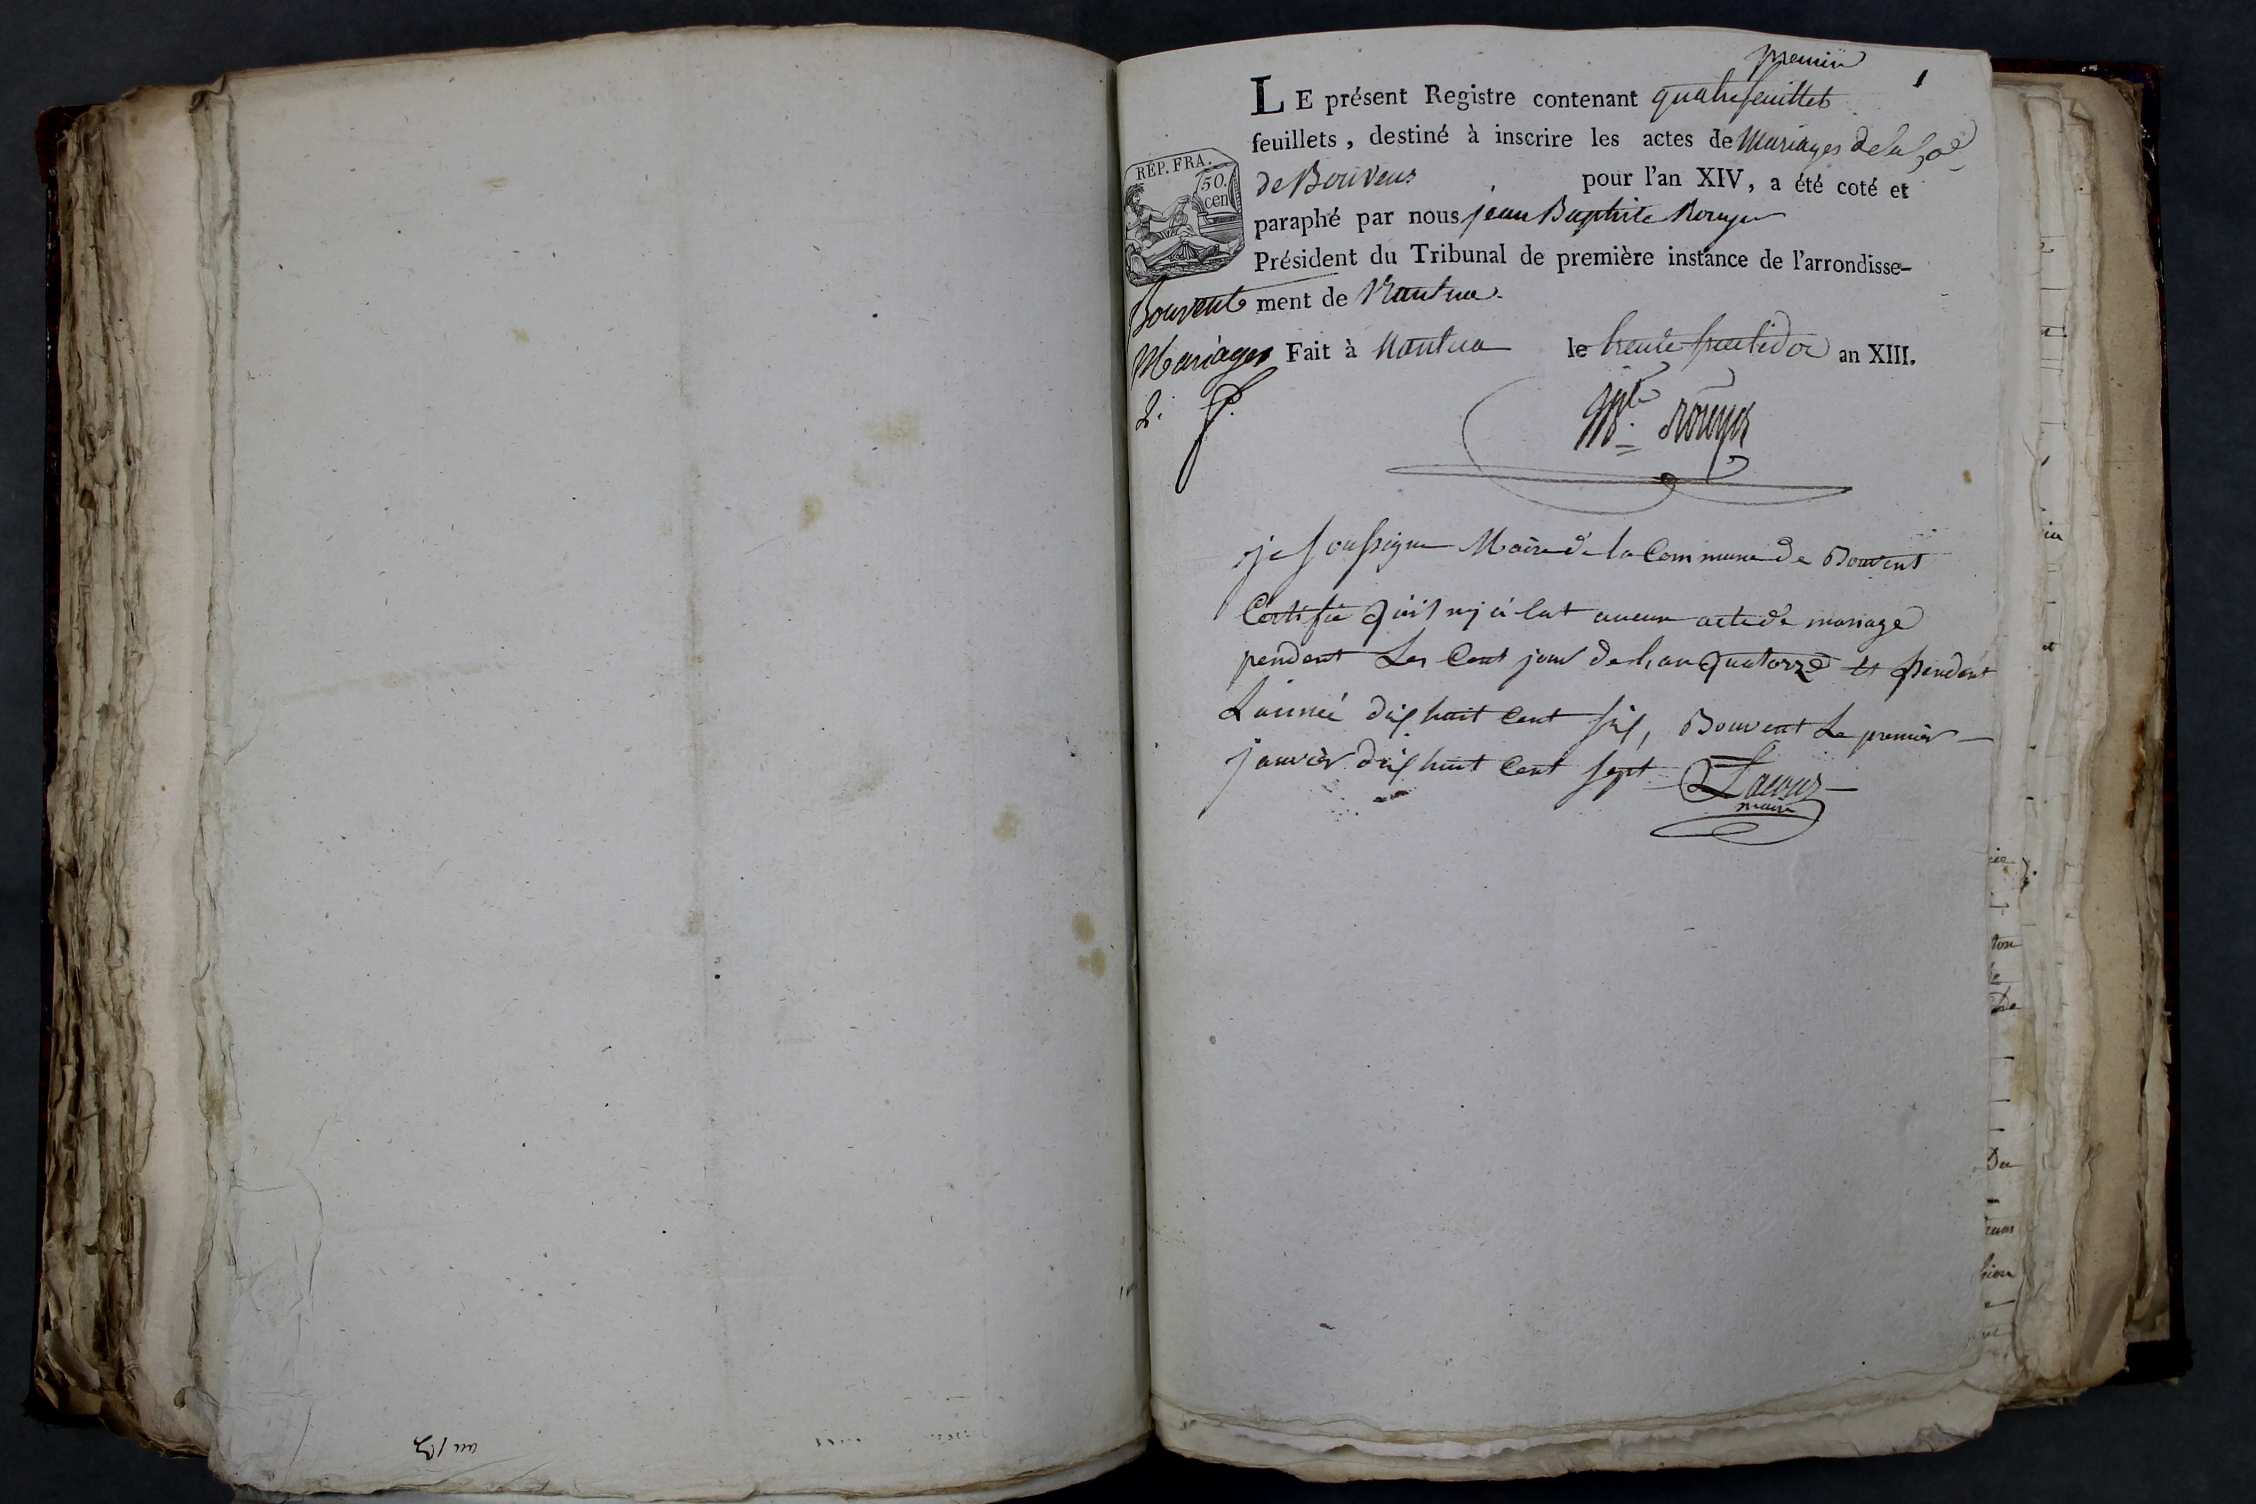 premier
1
LE présent Registre contenant quatre feuillets
feuillets, destiné à inscrire les actes de Mariages de la
de Bouvens pour l'an XIV, a été coté et
paraphé par nous jean Baptiste Rouyer
Président du Tribunal de première instance de l'arrondisse-
ment de Nantua.
Fait à Nantua le trente fructidor an XIII.
RÉP. FRA.
50.
cen
Bouvent
Mariages
2.
rouyer
je soussigne Maire de la Commune de Bouvent
Certifie quil nj à eut aucun acte de mariage
pendent Les Cent jour de l,an quatorze et pendent
L'année dix huit Cent six, Bouvent Le premier
janvier dix huit Cent sept Lacour
maire
an 13